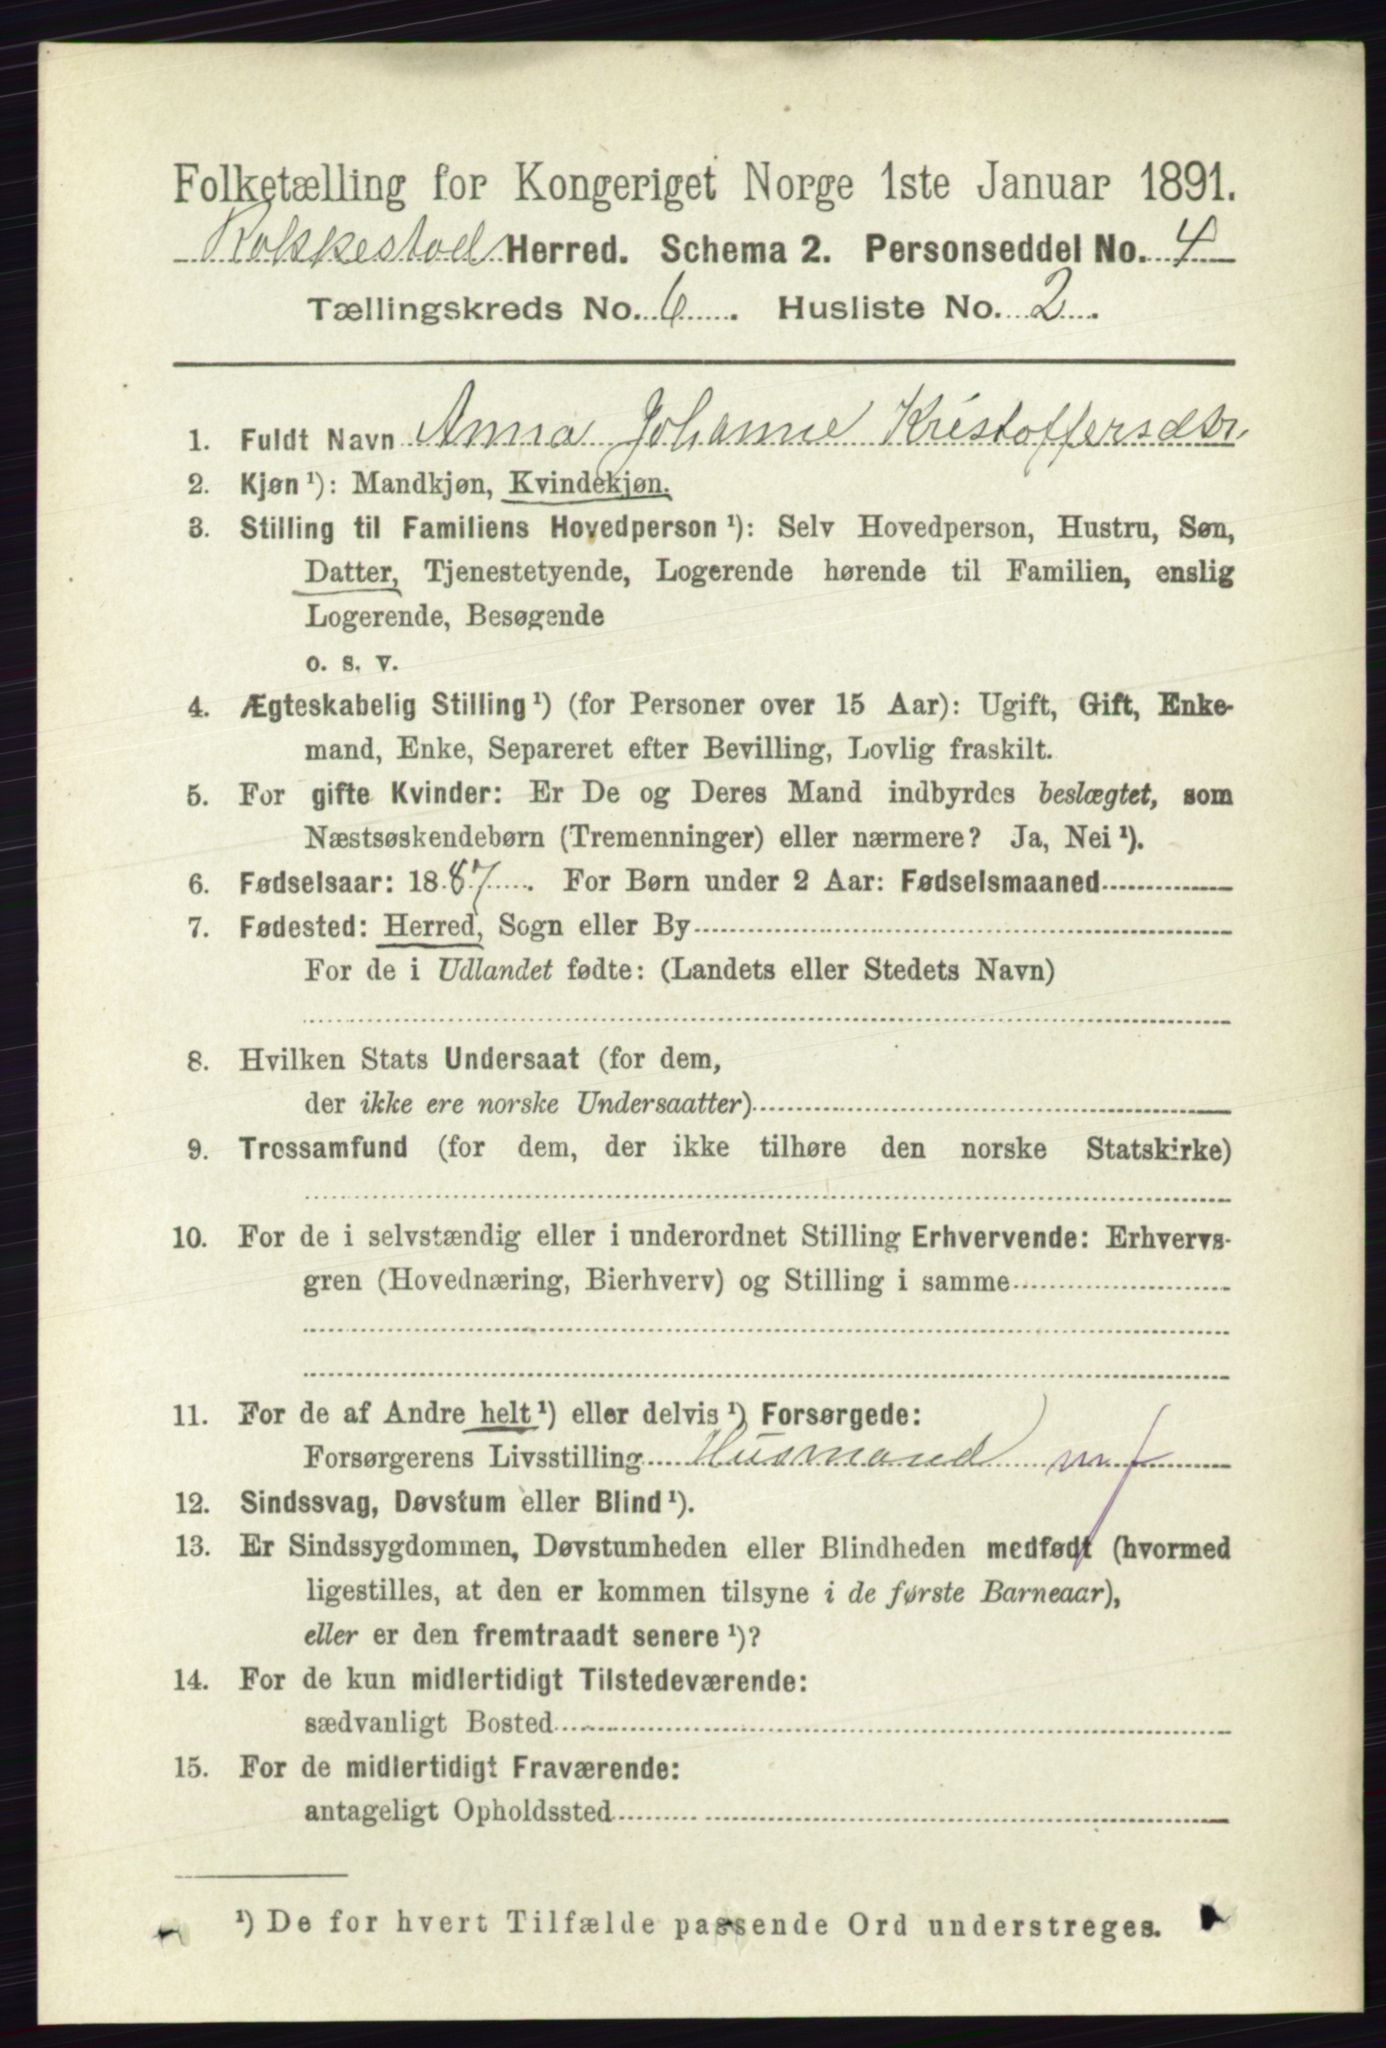 Folketælling for Kongeriget Norge 1ste Januar 1891.
Rakkestad Herred. Schema 2. Personseddel No. 4
Tællingskreds No. 6. Husliste No. 2.
1. Fuldt Navn Anna Johanne Kristoffersdtr
2. Kjøn ¹): Mandkjøn, Kvindekjøn.
3. Stilling til Familiens Hovedperson ¹): Selv Hovedperson, Hustru, Søn,
Datter, Tjenestetyende, Logerende hørende til Familien, enslig
Logerende, Besøgende
o. s. v.
4. Ægteskabelig Stilling ¹) (for Personer over 15 Aar): Ugift, Gift, Enke-
mand, Enke, Separeret efter Bevilling, Lovlig fraskilt.
5. For gifte Kvinder: Er De og Deres Mand indbyrdes beslægtet, som
Næstsøskendebørn (Tremenninger) eller nærmere? Ja, Nei ¹).
6. Fødselsaar: 1887. For Børn under 2 Aar: Fødselsmaaned
7. Fødested: Herred, Sogn eller By
For de i Udlandet fødte: (Landets eller Stedets Navn)
8. Hvilken Stats Undersaat (for dem,
der ikke ere norske Undersaatter)
9. Trossamfund (for dem, der ikke tilhøre den norske Statskirke)
10. For de i selvstændig eller i underordnet Stilling Erhvervende: Erhvervs-
gren (Hovednæring, Bierhverv) og Stilling i samme
11. For de af Andre helt ¹) eller delvis ¹) Forsørgede:
Forsørgerens Livsstilling Husmand mf
12. Sindssvag, Døvstum eller Blind ¹).
13. Er Sindssygdommen, Døvstumheden eller Blindheden medfødt (hvormed
ligestilles, at den er kommen tilsyne i de første Barneaar),
eller er den fremtraadt senere ¹)?
14. For de kun midlertidigt Tilstedeværende:
sædvanligt Bosted
15. For de midlertidigt Fraværende:
antageligt Opholdssted
¹) De for hvert Tilfælde passende Ord understreges.